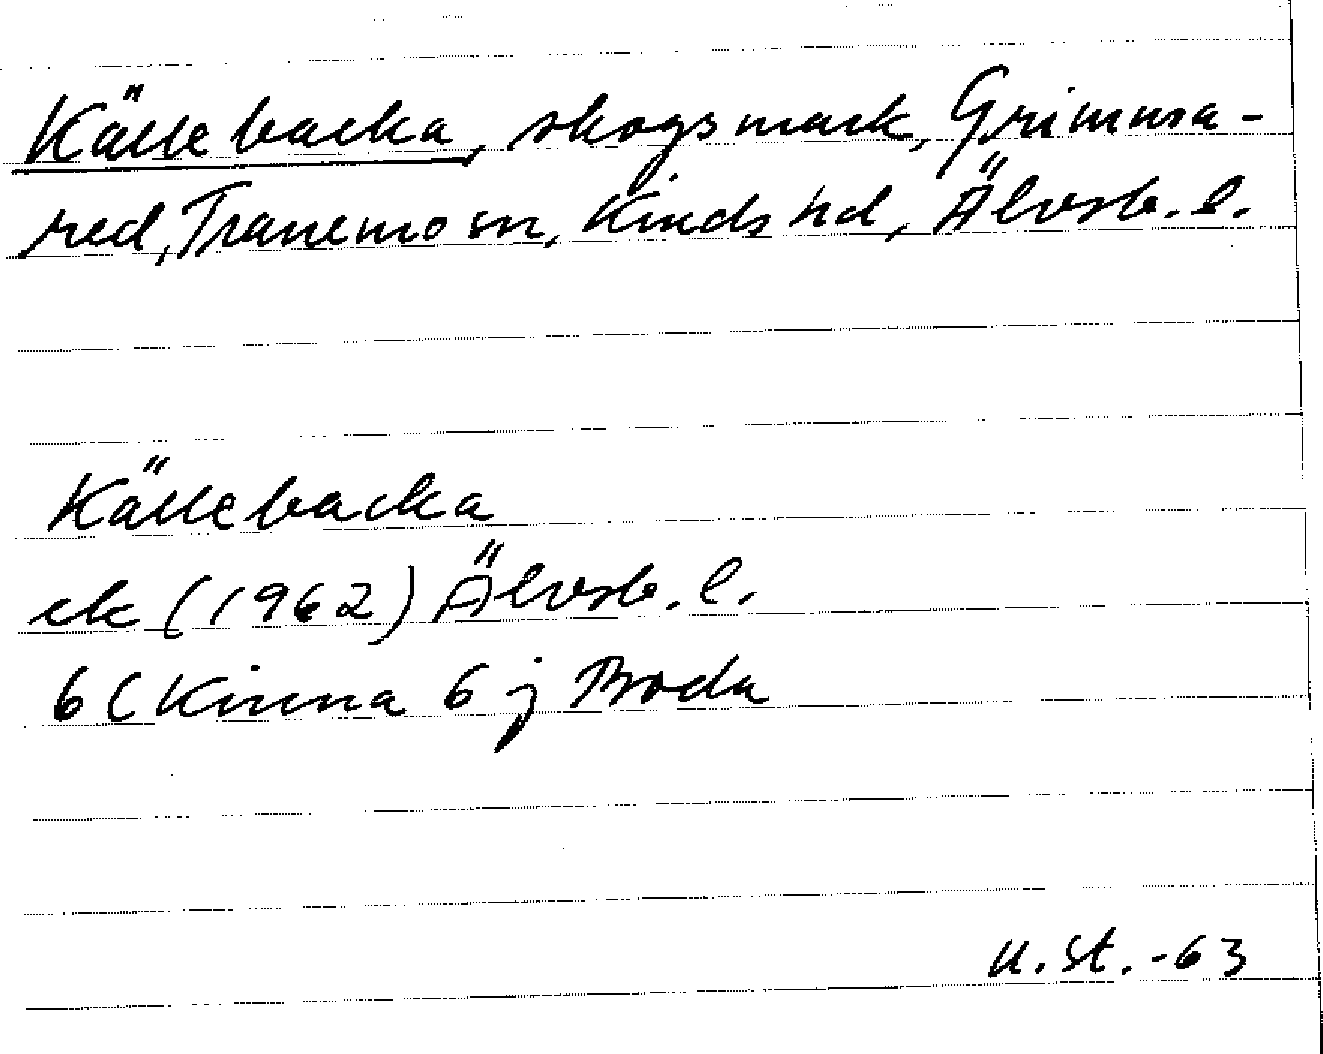 Källebacka, skogsmark, Grimma-
red, Tranemo sn, Kinds hd, Älvsb. l.
Källebacka
ek (1962) Älvsb. l.
6 C Kinna 6 j Boda
U. St. -63